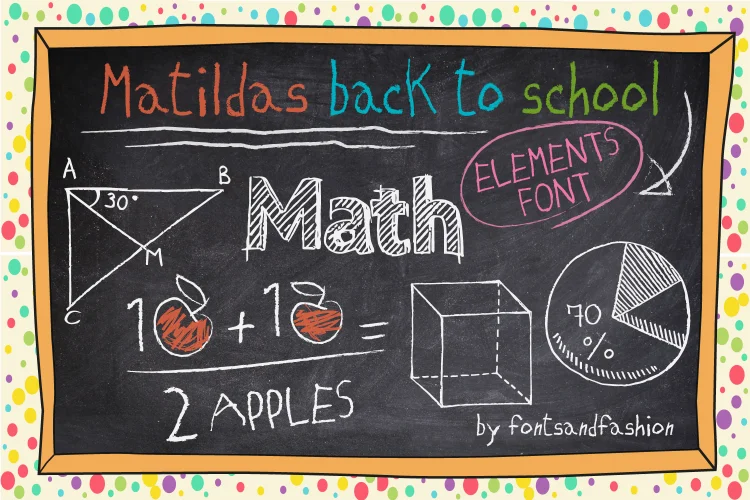 Matildas back to school
ELEMENTS
FONT
A
B
30°
Math
M
C
1 + 1 =
2 APPLES
70
%
by fontsandfashion